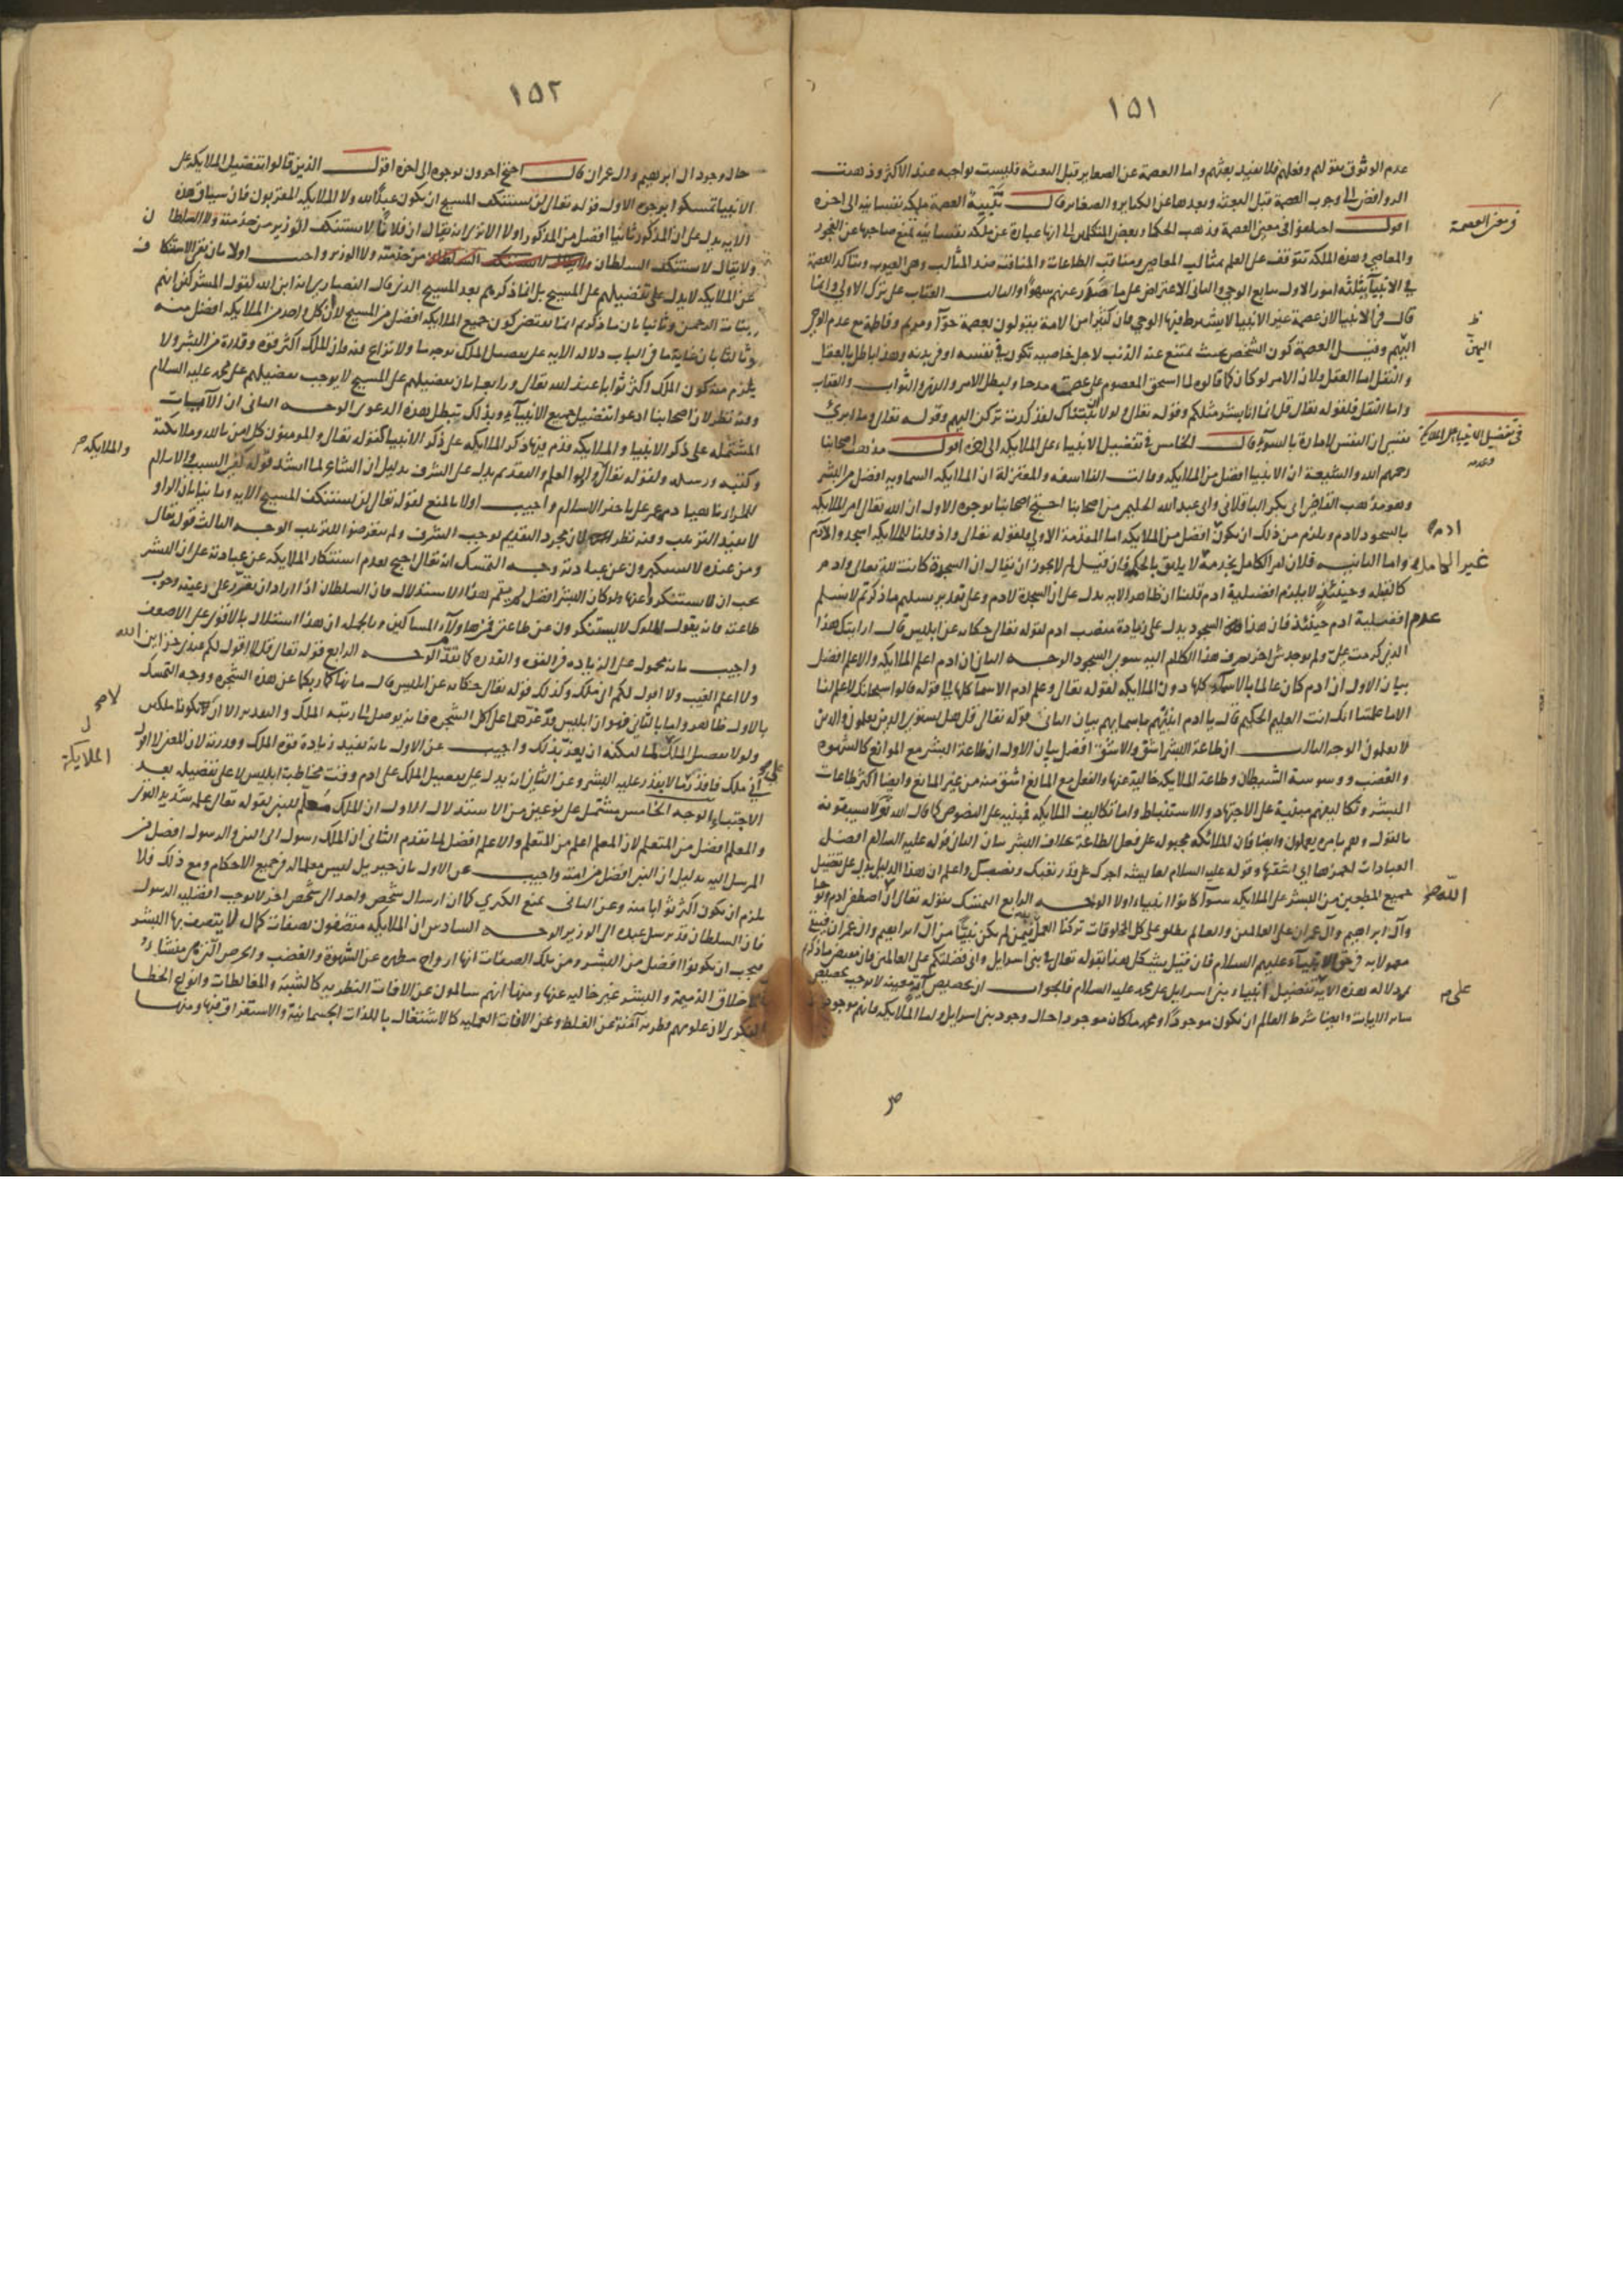 ١٥١
عدم الوثوق بقولهم وفعلهم فلا تفيد بعثتهم واما العصمة عن الصغاير قبل البعثه فليست بواجبه عند الاكثر وذهبت
الروافض الى وجوب العصمة قبل البعثه وبعدها عن الكباير والصغاير قال تنبيه العصمة ملكة نفسانيه الى اخره
في معنى العصمة
اقول اختلفوا في معنى العصمة وذهب الحكما وبعض المتكلمين الى انها عبارة عن ملكه نفسانيه تمنع صاحبها عن الفجور
والمعاصي وهذه الملكه تتوقف على العلم بمثالب المعاصي ومناقب الطاعات والمناقب ضد المثالب وهي العيوب وتتأكد العصمة
في الانبيا بثلثة امور الاول تتابع الوحي والثاني الاعتراض على ما صدر عنهم سهوا والثالث العتاب على ترك الاولى وانما
قال في الانبيا لان عصمة غير الانبيا لا يشترط فيها الوحي فان كثيرا من الامة يقولون بعصمة حوا ومريم وفاطمة مع عدم الوحي
اليهم وقيل العصمة كون الشخص بحيث يمتنع عنه الذنب لاجل خاصيه تكون في نفسه او في بدنه وهذا باطل بالعقل
والنقل اما العقل فلان الامر لو كان كما قالوه لما استحق المعصوم على عصمته مدحا ولبطل الامر والنهي والثواب والعقاب
واما النقل فلقوله تعالى قل انما انا بشر مثلكم وقوله تعالى ولولا ان ثبتناك لقد كدت تركن اليهم وقوله تعالى وما ابرئ
في تفضيل الانبيا على الملايكة
نفسي ان النفس لامارة بالسوء قال الخامس في تفضيل الانبياء على الملايكه الى اخره اقول مذهب اصحابنا
رحمهم الله والشيعة ان الانبيا افضل من الملايكه وقالت الفلاسفه والمعتزلة ان الملايكه السماويه افضل من البشر
وهو مذهب القاضي ابي بكر الباقلاني وابي عبد الله الحليمي من اصحابنا احتج اصحابنا بوجوه الاول ان الله تعالى امر الملايكه
بالسجود لادم ويلزم من ذلك ان يكون افضل من الملايكه اما المقدمة الاولى فلقوله تعالى واذ قلنا للملايكه اسجدوا لآدم
واما الثانيه فلان امر الكامل بخدمة لا يليق بالحكم فان قيل لم لا يجوز ان يقال ان السجدة كانت لله تعالى وادم
كالقبله وحينئذ لا يلزم افضلية ادم قلنا ان ظاهر الايه يدل على ان السجدة لادم وعلى تقدير تسليم ما ذكرتم لا نسلم
عدم افضلية ادم حينئذ فان هذا السجود يدل على زيادة منصب ادم لقوله تعالى حكايه عن ابليس قال ارايتك هذا
الذي كرمت علي ولم يوجد شي اخر يصرف هذا الكلام اليه سوى السجود الوجه الثاني ان ادم اعلم من الملايكه والاعلم افضل
بيان الاول ان ادم كان عالما بالاسماء كلها دون الملايكه لقوله تعالى وعلم ادم الاسما كلها الى قوله قالوا سبحانك لا علم لنا
الا ما علمتنا انك انت العليم الحكيم قال يا ادم انبئهم باسمايهم بيان الثاني قوله تعالى قل هل يستوي الذين يعلمون والذين
لا يعلمون الوجه الثالث ان طاعة البشر اشق والاشق افضل بيان الاول ان طاعة البشر مع الموانع كالشهوة
والغضب ووسوسة الشيطان وطاعة الملايكه خالية عنها والفعل مع المانع اشق منه من غير المانع وايضا اكثر طاعات
البشر وتكاليفهم مبنية على الاجتهاد والاستنباط واما تكاليف الملايكه فمبنيه على النصوص كما قال الله تعالى لا يسبقونه
بالقول وهم بامره يعملون وايضا فان الملائكه مجبوله على فعل الطاعة بخلاف البشر بيان الثاني قوله عليه السلام افضل
العبادات احمزها اي اشقها وقوله عليه السلام لعايشه اجرك على قدر تعبك ونصبك واعلم ان هذا الدليل يدل على تفضيل
جميع المطيعين من البشر على الملايكه سواء كانوا انبياء اولا الوجه الرابع التمسك بقوله تعالى ان الله اصطفى ادم ونوحا
وآل ابراهيم وآل عمران على العالمين والعالم يطلق على كل المخلوقات تركنا العمل فيمن لم يكن نبيا من آل ابراهيم وال عمران فيبقى
معمولا به في حق الانبياء عليهم السلام فان قيل يشكل هذا بقوله تعالى يا بني اسرايل واني فضلتكم على العالمين فان
سائر الايات وايضا شرط العالم ان يكون موجودا ومحمد ما كان موجودا حال وجود بني اسرايل واما الملايكه فانهم موجودون
١٥٢
حال وجود ال ابرهيم وال عمران قال احتج اخرون بوجوه الى اخره اقول الذين قالوا بتفضيل الملايكة على
الانبيا تمسكوا بوجوه الاول قوله تعالى لن يستنكف المسيح ان يكون عبدا لله ولا الملايكه المقربون فان سياق هذه
الايه يدل على ان المذكور ثانيا افضل من المذكور اولا الا ترى انه يقال ان فلانا لا يستنكف الوزير من خدمته ولا السلطان
ولا يقال لا يستنكف السلطان من خدمته ولا الوزير واجيب اولا بان نفي الاستنكاف
عن الملايكه لا يدل على تفضيلهم على المسيح بل انما ذكرهم بعد المسيح الذي قال النصارى انه ابن الله لقول المشركين انهم
بنات الرحمن وثانيا بان ما ذكرتم انما يقتضي كون جميع الملايكه افضل من المسيح لا ان كل واحد من الملايكه افضل منه
وثالثا بان غاية ما في الباب دلاله الايه على تفضيل الملك بوجه ما ولا نزاع فيه فان الملك اكثر قوه وقدرة من البشر ولا
يلزم منه كون الملك اكثر ثوابا عند الله تعالى ورابعا بان تفضيلهم على المسيح لا يوجب تفضيلهم على محمد عليه السلام
وفيه نظر لان اصحابنا ادعوا تفضيل جميع الانبياء وبذلك تبطل هذه الدعوى الوجه الثاني ان الآيات
المشتمله على ذكر الانبيا والملايكه قدم فيها ذكر الملايكه على ذكر الانبيا كقوله تعالى والمومنون كل امن بالله وملائكته
والملايكه
وكتبه ورسله ولقوله تعالى واولو العلم والتقديم يدل على الشرف بدليل ان الشاعر لما انشد قوله كفى الشيب والاسلام
للمرء ناهيا قال عمر واجيب اولا بالمنع لقوله تعالى لن يستنكف المسيح الايه وثانيا بان الواو
لا تفيد الترتيب وفيه نظر لان مجرد التقديم يوجب الشرف ولم يتعرضوا للترتيب الوجه الثالث قوله تعالى
ومن عنده لا يستكبرون عن عبادته وجه التمسك انه تعالى احتج بعدم استكبار الملايكه عن عبادته على ان البشر
يجب ان لا يستكبروا عنها ولو كان البشر افضل لم يتم هذا الاستدلال فان السلطان اذا اراد ان يقرر على رعيته وجوب
طاعته فانه يقول الملوك لا يستنكرون عن طاعتي فمن هاولاء المساكين وبالجمله ان هذا استدلال بالاقوى على الاضعف
واجيب بانه محمول على الزياده في القوه والقدره كما تقدم الوجه الرابع قوله تعالى قل لا اقول لكم عندي خزاين الله
ولا اعلم الغيب ولا اقول لكم اني ملك وكذلك قوله تعالى حكايه عن ابليس قال ما نهاكما ربكما عن هذه الشجره ووجه التمسك
بالاول ظاهر واما بالثاني فهو ان ابليس قد غرهما على اكل الشجره فانه يوصل الى رتبه الملك والتقدير الا ان تكونا ملكين
ولولا تفضيل الملك لما امكنه ان يغره بذلك واجيب عن الاول بانه يفيد زيادة قوه الملك وقدرته لان المعنى لا اقول
الملايكة
اني ملك فاقدر لما لا يقدر عليه البشر وعن الثاني انه يدل على تفضيل الملك على ادم وقت مخاطبة ابليس لا على تفضيله بعد
الاجتباء الوجه الخامس مشتمل على نوعين من الاستدلال الاول ان الملك معلم للنبي لقوله تعالى علمه شديد القوى
والمعلم افضل من المتعلم لان المعلم اعلم من المتعلم والاعلم افضل لما تقدم الثاني ان الملك رسول الى النبي والرسول افضل من
المرسل اليه بدليل ان النبي افضل من امته واجيب عن الاول بان جبريل ليس معلما له في جميع الاحكام ومع ذلك فلا
يلزم ان يكون اكثر ثوابا منه وعن الثاني بمنع الكبرى كما ان ارسال شخص واحد الى شخص اخر لا يوجب افضليه الرسول
فان السلطان قد يرسل عبده الى الوزير الوجه السادس ان الملايكه متصفون بصفات كمال لا يتصف بها البشر
فيجب ان يكونوا افضل من البشر ومن تلك الصفات انها ارواح مطهره عن الشهوة والغضب والحرص التي هي منشا
الاخلاق الذميمة والبشر غير خاليه عنها ومنها انهم سالمون عن الافات النظريه كالشبه والمغالطات وانواع الخطا
الفكري لان علومهم فطريه آمنة عن الغلط وعن الافات العمليه كالاشتغال باللذات الجسمانية والاستغراق فيها ومنها